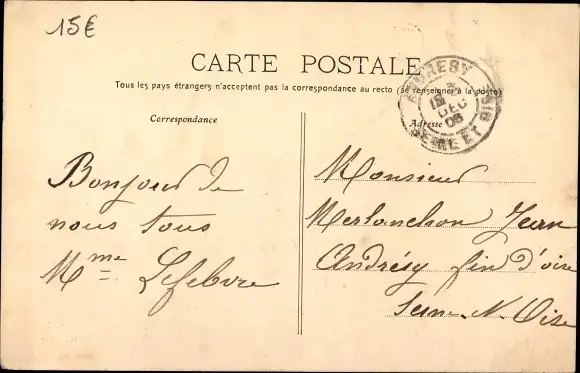 15€
CARTE POSTALE
Tous les pays étrangers n'acceptent pas la correspondance au recto (se renseigner à la poste)
Correspondance
Adresse
ANDRESY
15
DEC
06
SEINE ET OISE
Bonjour de
nous tous
Mme Lefebvre
Monsieur
Jean
Andrésy fin d'oise
Seine N. Oise